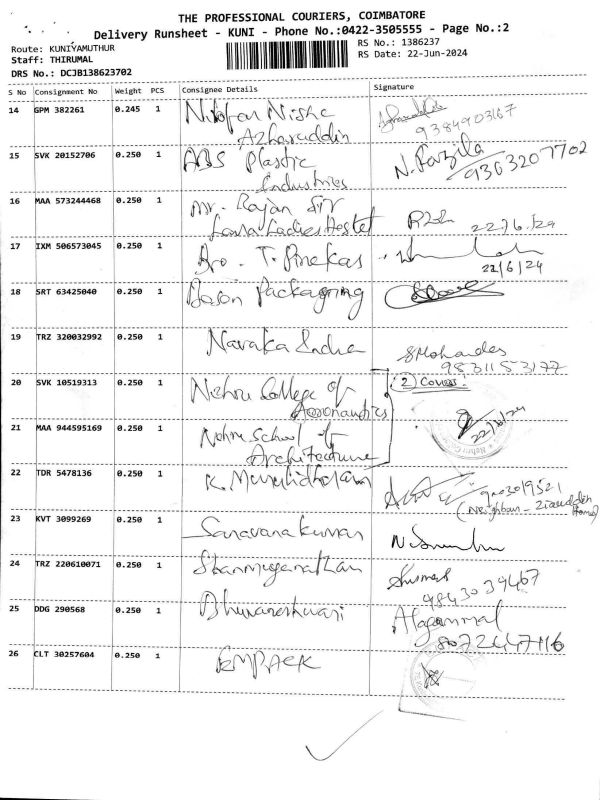 THE PROFESSIONAL COURIERS, COIMBATORE
Delivery Runsheet - KUNI - Phone No.:0422-3505555 - Page No.:2
Route: KUNIYAMUTHUR
RS No.: 1386237
Staff: THIRUMAL
RS Date: 22-Jun-2024
DRS No.: DCJB138623702
S No Consignment No Weight PCS Consignee Details Signature
14 GPM 382261 0.245 1 Nilofar Nisha
Azharuddin
9384903167
15 SVK 20152706 0.250 1 ABS Plastic N. Fazila
Industries 9363207702
16 MAA 573244468 0.250 1 Mr. Rajan
Ladies Hostel 22/6/24
17 IXM 506573045 0.250 1 Bro. T.
22/6/24
18 SRT 63425040 0.250 1 Packaging
19 TRZ 320032992 0.250 1 India
9831153177
20 SVK 10519313 0.250 1 Nehru College of 2 Covers.
Aeronautics
22/6/24
21 MAA 944595169 0.250 1 Nehru School of
Architecture
22 TDR 5478136 0.250 1 K. Muralidharan
(Neighbour - Ziauddin
23 KVT 3099269 0.250 1 Saravana kumar
24 TRZ 220610071 0.250 1 Shanmuganathan
9843039467
25 DDG 290568 0.250 1 Bhuvaneshwari Alagammal
8072447116
26 CLT 30257604 0.250 1 EMPACK